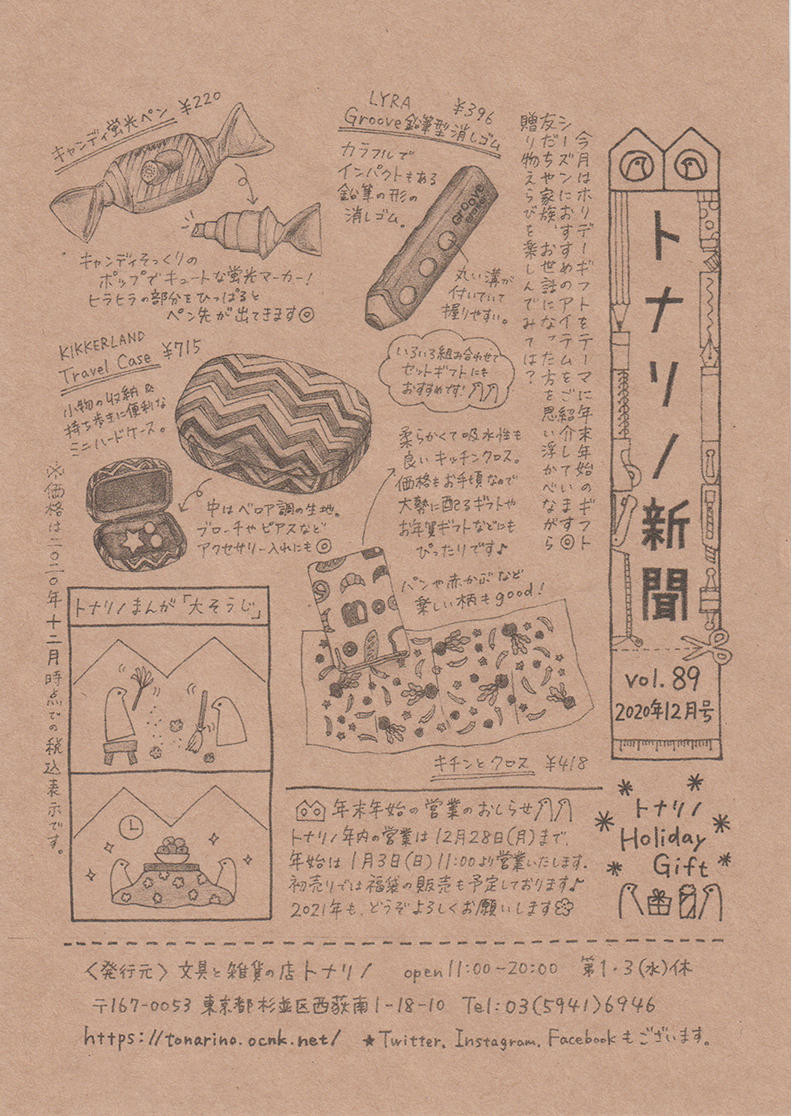 トナリノ新聞
vol. 89
2020年12月号
今月はホリデーギフトをテーマに年末年始のギフト
シーズンにおすすめのアイテムをご紹介しています◎
友だちや家族、お世話になった方を思い浮かべながら
贈り物えらびを楽しんでみては？
LYRA ¥396
Groove鉛筆型消しゴム
カラフルで
インパクトもある
鉛筆の形の
消しゴム。
Groove
丸い溝が
付いていて
握りやすい。
キャンディ蛍光ペン ¥220
キャンディそっくりの
ポップでキュートな蛍光マーカー！
ヒラヒラの部分をひっぱると
ペン先が出てきます◎
いろいろ組み合わせて
セットギフトにも
おすすめです！
KIKKERLAND
Travel Case ¥715
小物の収納&
持ち歩きに便利な
ミニハードケース。
中はベロア調の生地。
ブローチやピアスなど
アクセサリー入れにも◎
柔らかくて吸水性も
良いキッチンクロス。
価格もお手頃なので
大勢に配るギフトや
お年賀ギフトなどにも
ぴったりです♪
パンや赤かぶなど
楽しい柄もgood！
キチンとクロス ¥418
※価格は二〇二〇年十二月時点での税込表示です。
トナリノまんが「大そうじ」
トナリノ
Holiday
Gift
年末年始の営業のおしらせ
トナリノ年内の営業は12月28日(月)まで、
年始は1月3日(日)11:00より営業いたします。
初売りでは福袋の販売も予定しております♪
2021年も、どうぞよろしくお願いします
〈発行元〉文具と雑貨の店トナリノ open 11:00-20:00 第1・3(水)休
〒167-0053 東京都杉並区西荻南1-18-10 Tel:03(5941)6946
https://tonarino.ocnk.net/ ★Twitter, Instagram, Facebookもございます。